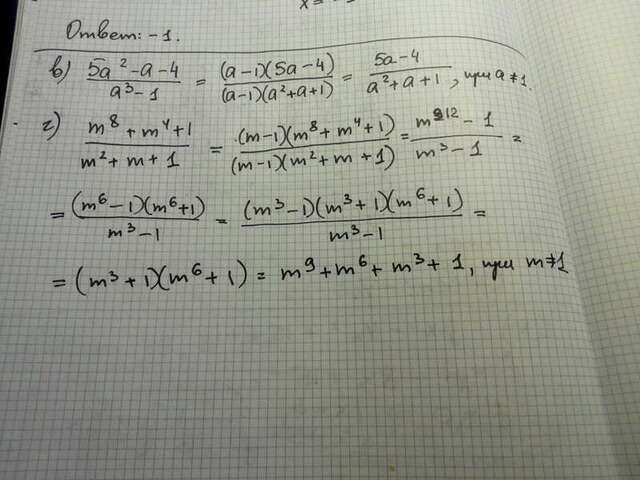 x = -
Ответ: -1.
в) (5a² - a - 4)/(a³ - 1) = ((a-1)(5a-4))/((a-1)(a²+a+1)) = (5a-4)/(a²+a+1), при a ≠ 1.
г) (m⁸ + m⁴ + 1)/(m² + m + 1) = ((m-1)(m⁸ + m⁴ + 1))/((m-1)(m² + m + 1)) = (m¹² - 1)/(m³ - 1) =
= ((m⁶ - 1)(m⁶ + 1))/(m³ - 1) = ((m³ - 1)(m³ + 1)(m⁶ + 1))/(m³ - 1) =
= (m³ + 1)(m⁶ + 1) = m⁹ + m⁶ + m³ + 1, при m ≠ 1